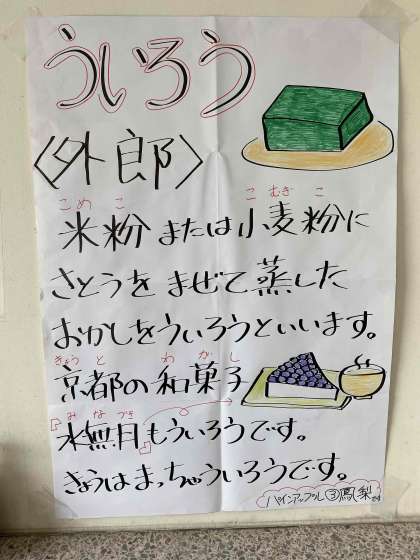 ういろう
〈外郎〉
こめ こ こ むぎ こ
米粉または小麦粉に
さとうをまぜて蒸した
おかしをういろうといいます。
きょう と わ が し
京都の和菓子
み な づき
『水無月』もういろうです。
きょうはまっちゃういろうです。
パインアップル③鳳梨です